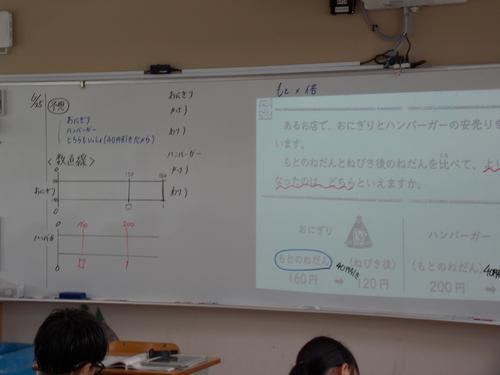 6/25
予想
おにぎり
ハンバーガー
どちらもいっしょ(40円引きだから)
<数直線>
おにぎり
0
120
160
0
□
1
ハンバーガー
0
160
200
0
□
1
もと×倍
おにぎり
ハンバーガー
あるお店で、おにぎりとハンバーガーの安売りを
います。
もとのねだんとねびき後のねだんを比べて、より
なったのは、どちらといえますか。
おにぎり
ハンバーガー
(もとのねだん)
40円引き
(ねびき後)
(もとのねだん)
160円
➡
120円
200円
➡